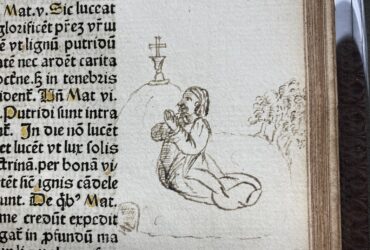 Mat.v. Sic luceat
glorificēt
e vt lignū putridū
atē nec ardēt carita
in tenebris
ident. Uñ Mat vi.
Putridi sunt intra
In die nō lucēt
et lucēt vt lux solis
trinā.per bonā vi
tēt sic ignis cādele
unt. De qb⁹ Mat.
me credūt expedit
gat in ꝓfundū ma